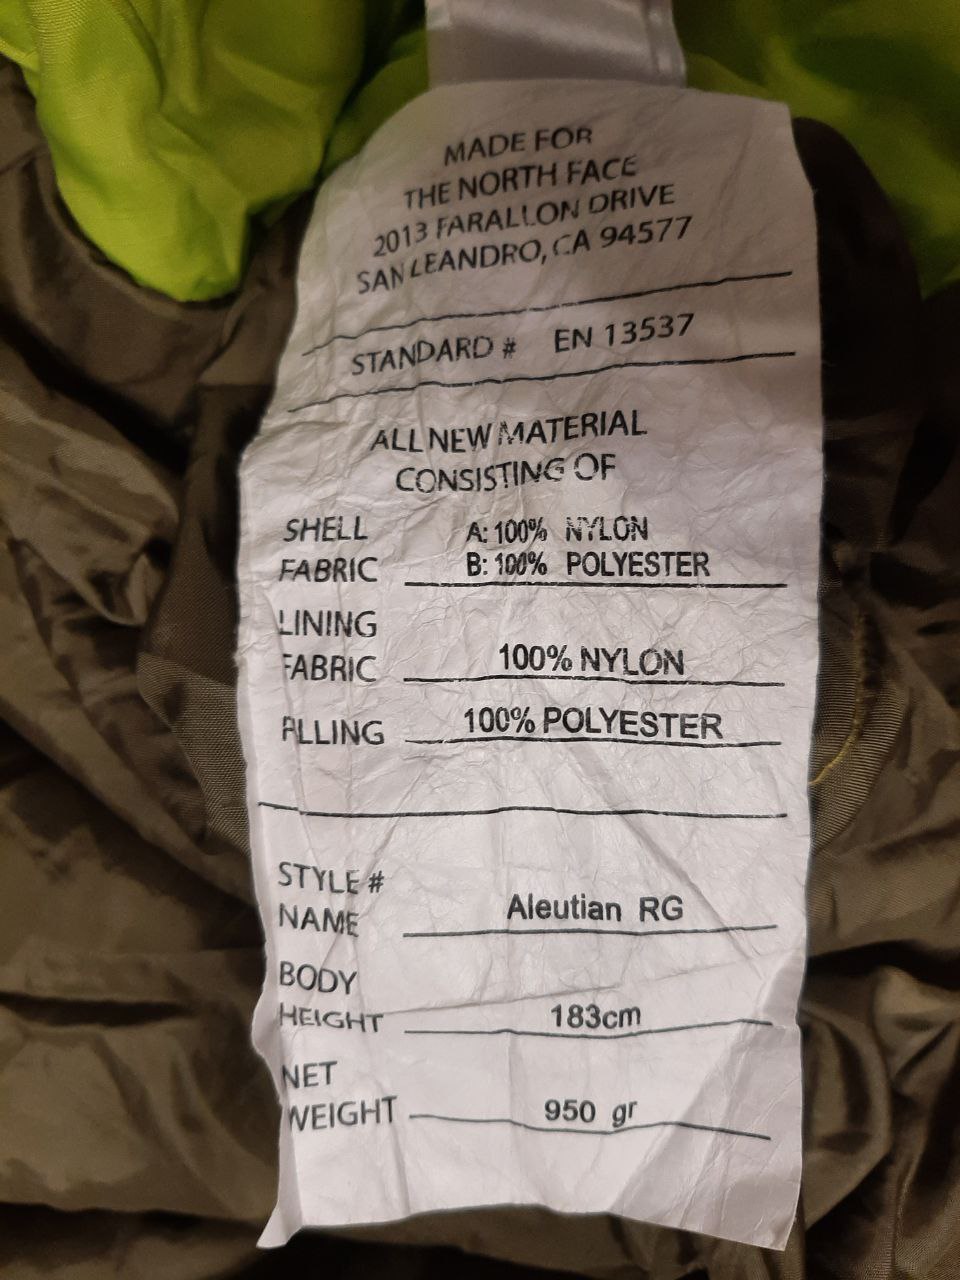 MADE FOR
THE NORTH FACE
2013 FARALLON DRIVE
SAN LEANDRO, CA 94577
STANDARD # EN 13537
ALL NEW MATERIAL
CONSISTING OF
SHELL A: 100% NYLON
FABRIC B: 100% POLYESTER
LINING
FABRIC 100% NYLON
FILLING 100% POLYESTER
STYLE #
NAME Aleutian RG
BODY
HEIGHT 183cm
NET
WEIGHT 950 gr